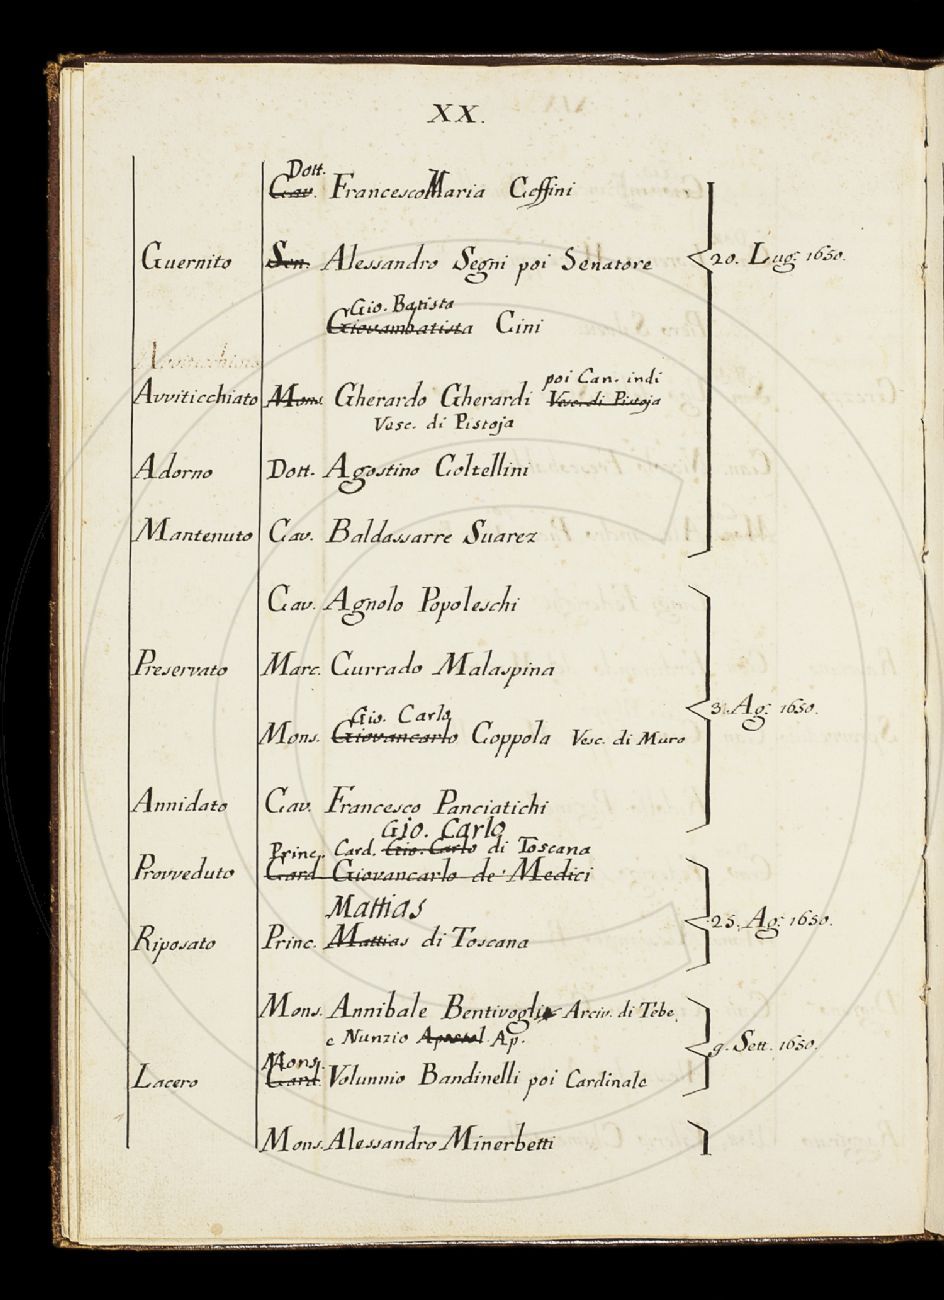 XX.
Dott.
Cav. Francesco Maria Ceffini
Guernito Sen. Alessandro Segni poi Senatore 20. Lug. 1650.
Gio. Batista
Giovambatista Cini
Avviticchiato
poi Can. indi
Avviticchiato Mons. Gherardo Gherardi Vesc. di Pistoja
Vesc. di Pistoja
Adorno Dott. Agostino Coltellini
Mantenuto Cav. Baldassarre Suarez
Cav. Agnolo Popoleschi
Preservato Marc. Currado Malaspina
3. Ag. 1650.
Gio. Carlo
Mons. Giovancarlo Coppola Vesc. di Muro
Annidato Cav. Francesco Panciatichi
Gio. Carlo
Princ. Card. Gio. Carlo di Toscana
Provveduto Card Giovancarlo de' Medici
Mattias
25. Ag. 1650.
Riposato Princ. Mattias di Toscana
Mons. Annibale Bentivogli Arciv. di Tebe
e Nunzio Apostol. Ap.
9. Sett. 1650.
Mons.
Lacero Card. Volunnio Bandinelli poi Cardinale
Mons. Alessandro Minerbetti